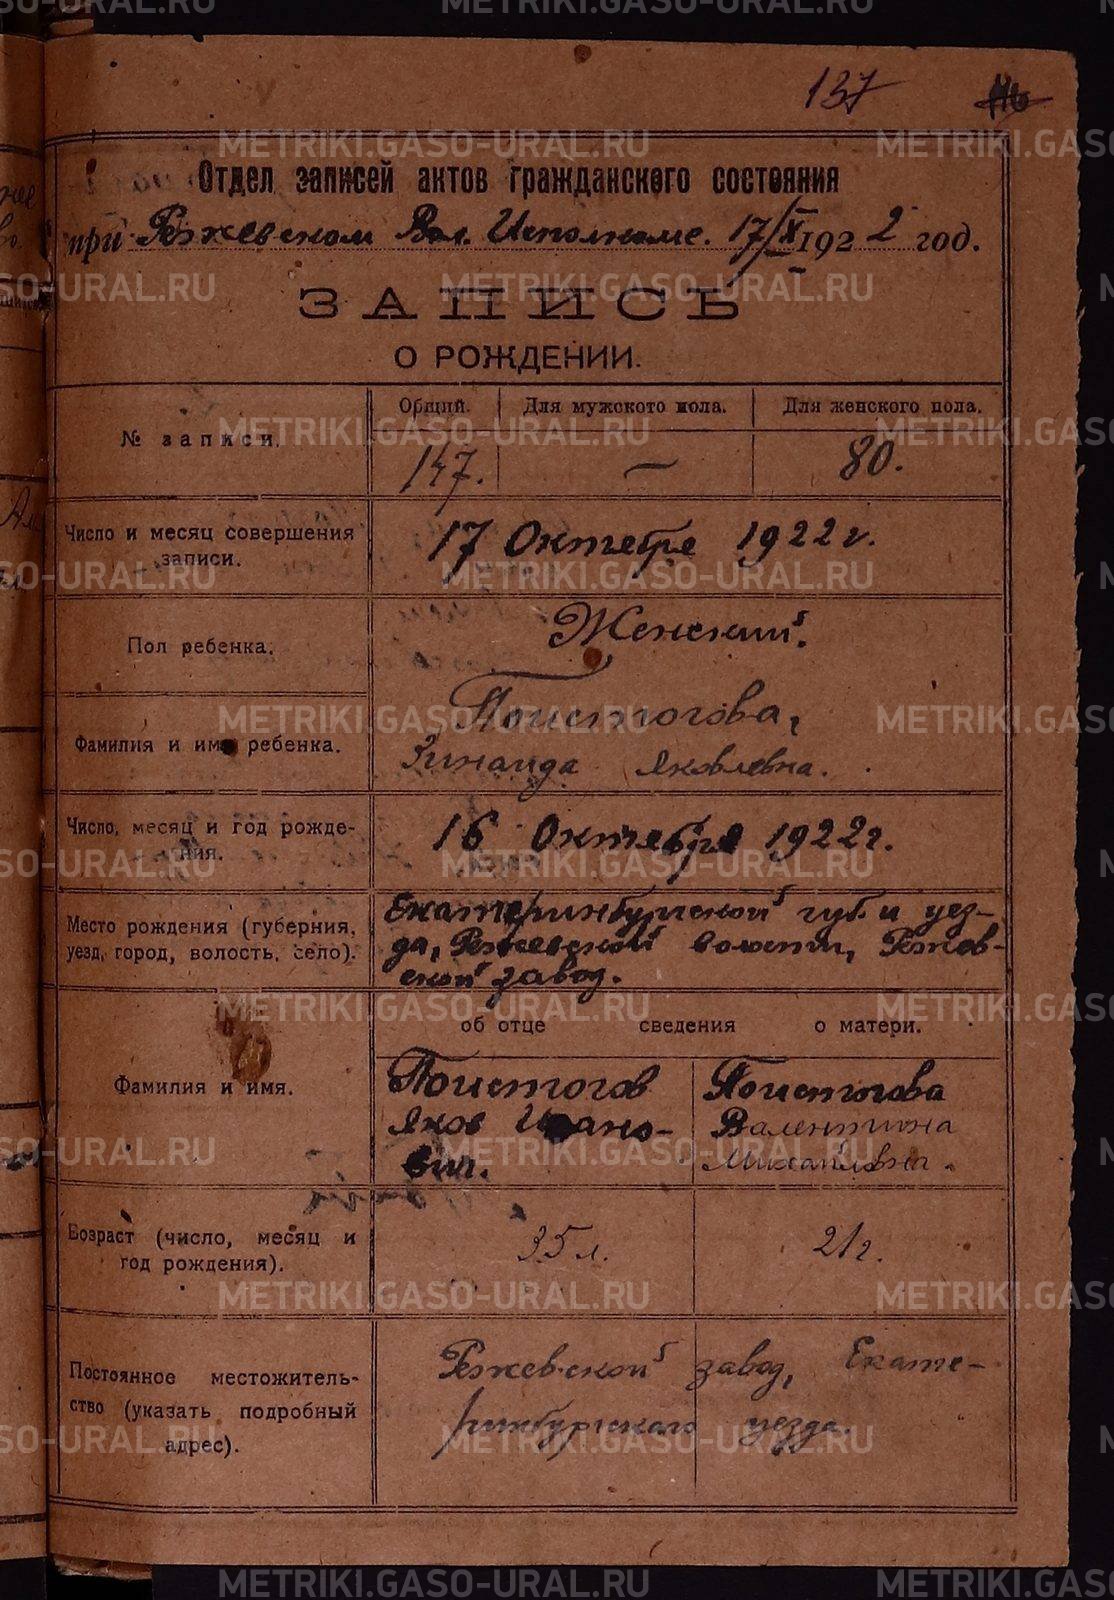 137
116
Отдел записей актов гражданского состояния
при Режевском Вол. Исполкоме. 17/X 1922 год.
ЗАПИСЬ
О РОЖДЕНИИ.
№ записи.
Общий. Для мужского пола. Для женского пола.
147. — 80.
Число и месяц совершения
записи.
17 Октября 1922 г.
Пол ребенка.
Женский.
Фамилия и имя ребенка.
Поистогова,
Зинаида Яковлевна.
Число, месяц и год рожде-
ния.
16 Октября 1922 г.
Место рождения (губерния,
уезд, город, волость, село).
Екатеринбургской губ. и уез-
да, Режевской волости, Режев-
ской завод.
об отце сведения о матери.
Фамилия и имя.
Поистогов
Яков Ивано-
вич.
Поистогова
Валентина
Михайловна.
Возраст (число, месяц и
год рождения).
35 л. 21 г.
Постоянное местожитель-
ство (указать подробный
адрес).
Режевской завод, Екате-
ринбургского уезда.
METRIKI.GASO-URAL.RU